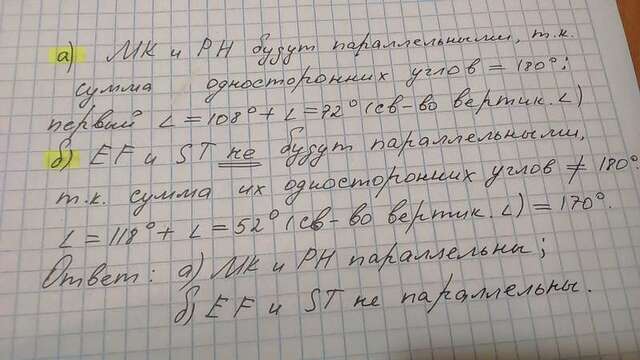 а) МК и РН будут параллельными, т.к.
сумма односторонних углов = 180°;
первый ∠ = 108° + ∠ = 72° (св-во вертик. ∠)
б) EF и ST не будут параллельными,
т.к. сумма их односторонних углов ≠ 180°.
∠ = 118° + ∠ = 52° (св-во вертик. ∠) = 170°.
Ответ: а) МК и РН параллельны;
б) EF и ST не параллельны.